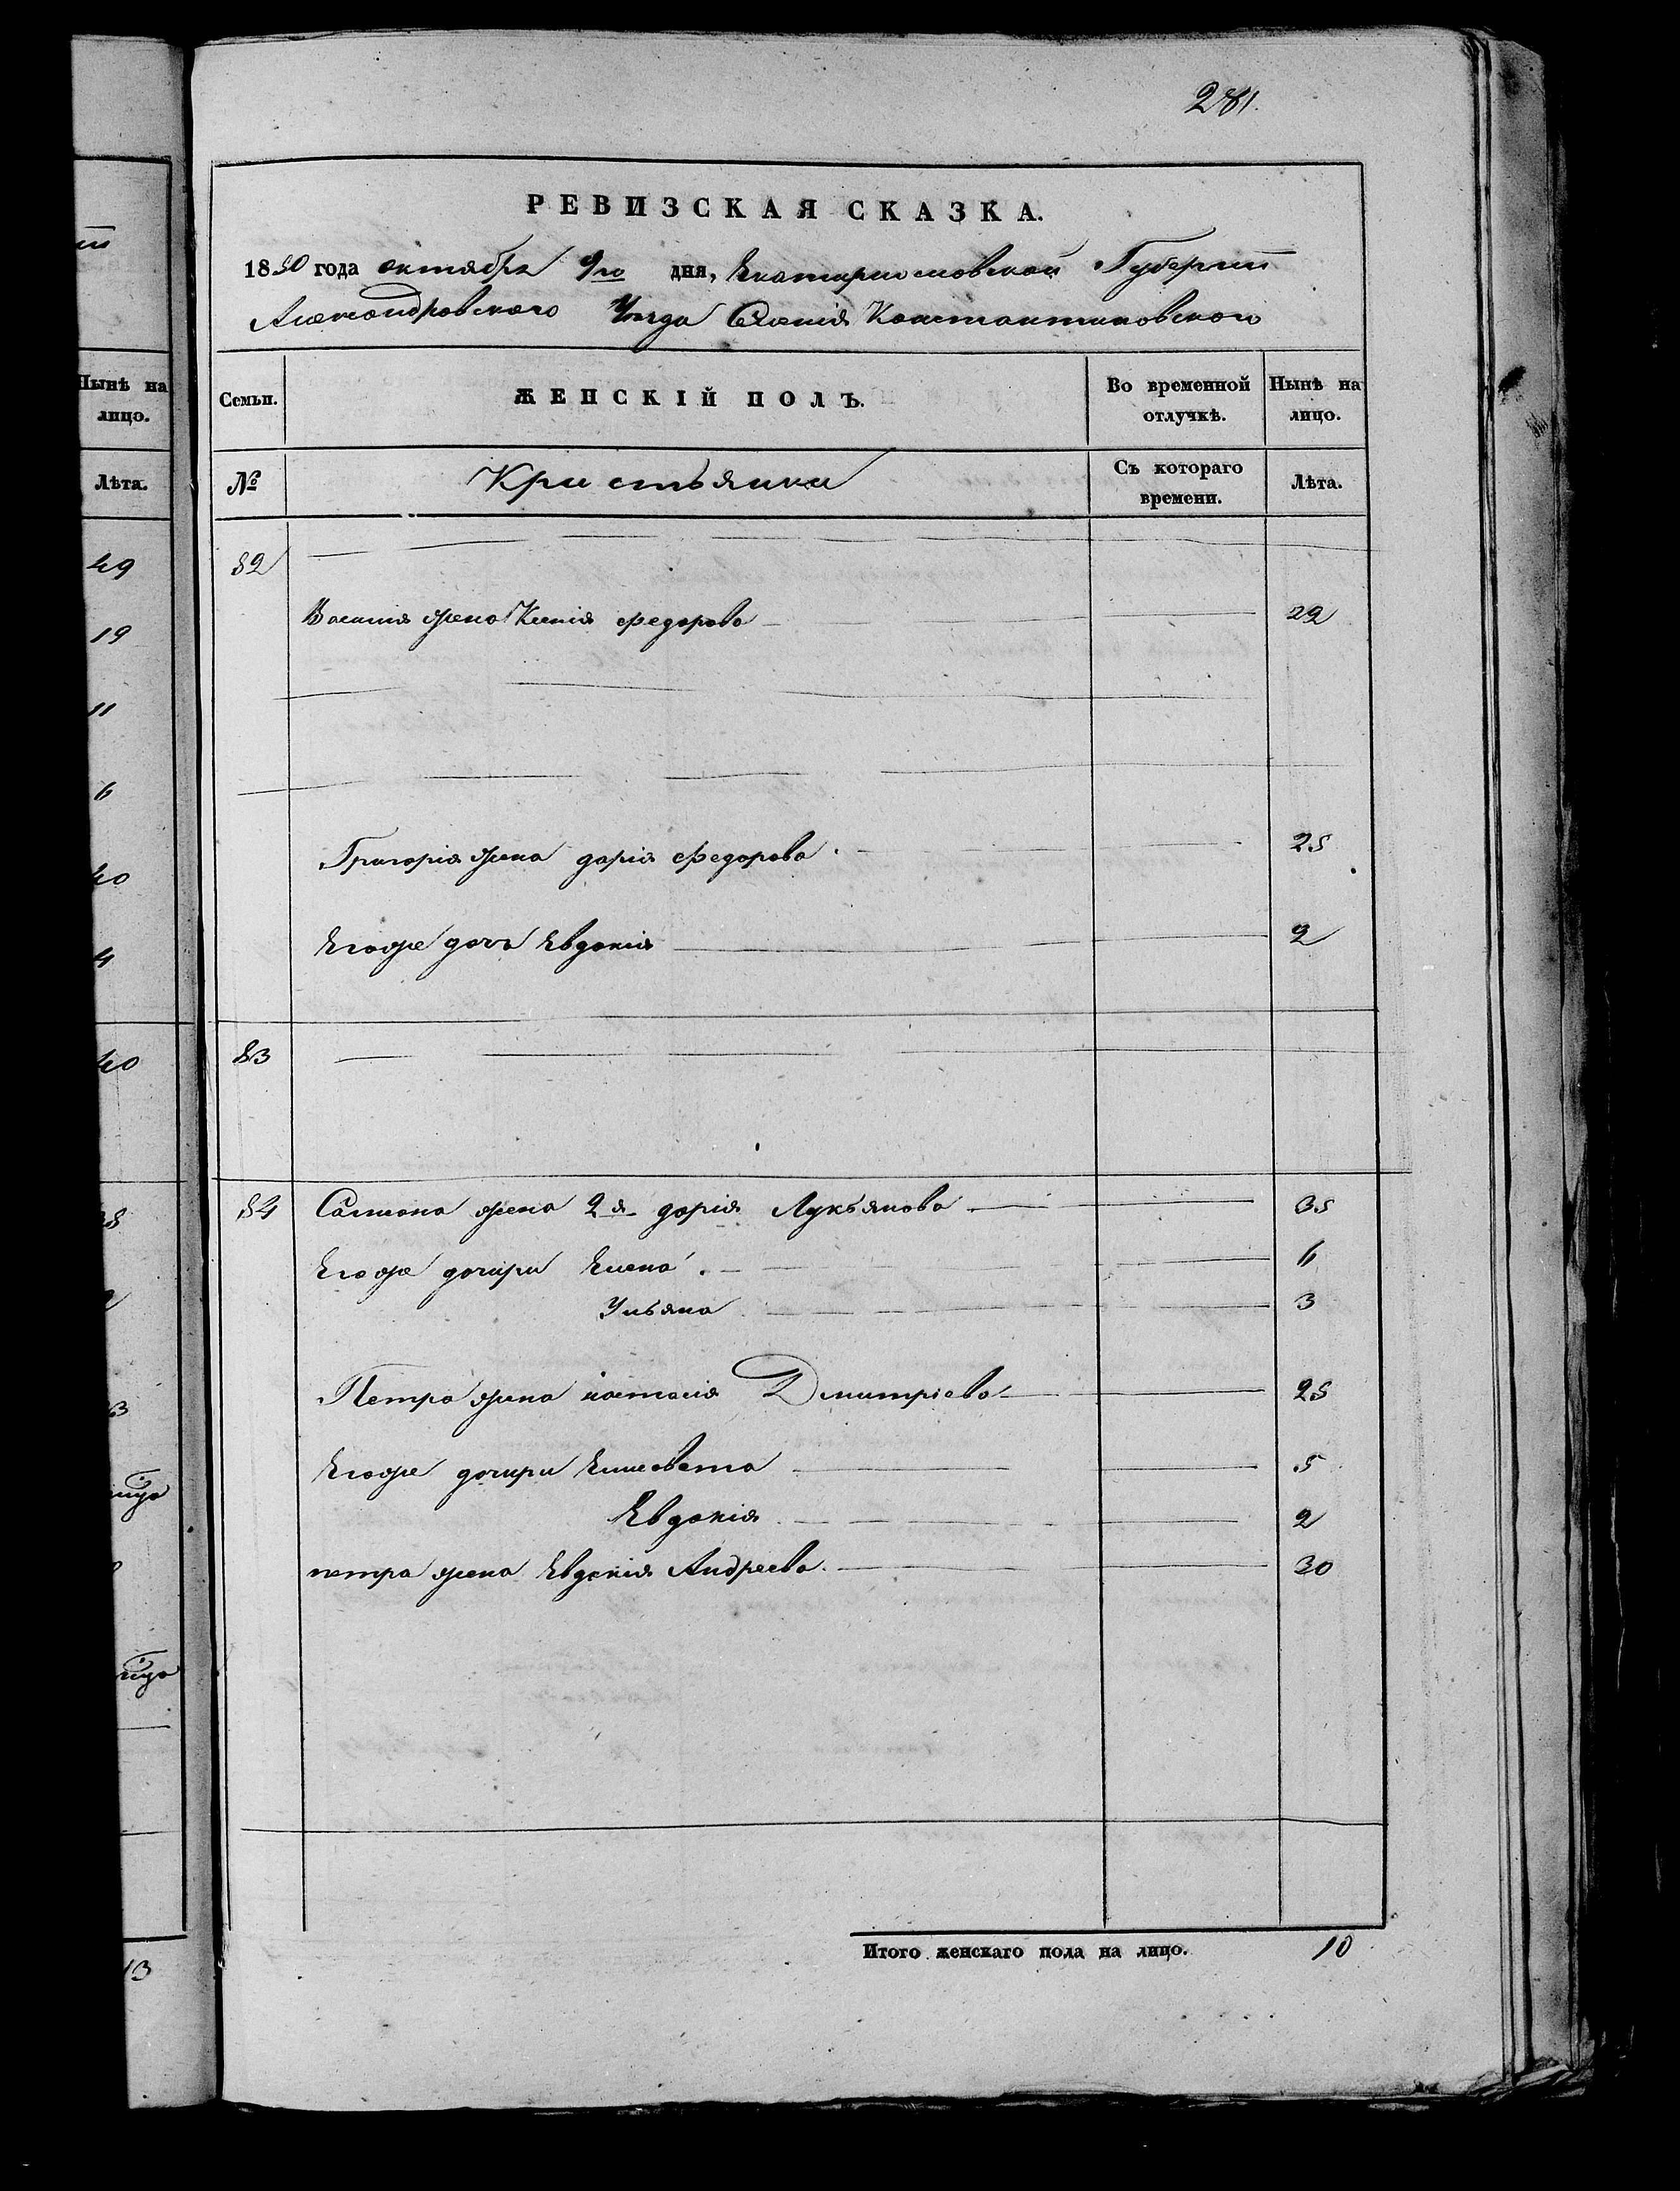 281.
РЕВИЗСКАЯ СКАЗКА.
1850 года октября 9го дня, Екатеринославской Губернии
Александровского Уезда Селения Константиновского
Семьи. ЖЕНСКІЙ ПОЛЪ. Во временной отлучкѣ. Нынѣ на лицо.
№ Кристьянки Съ котораго времени. Лѣта.
52
Василия жена Ксенія Федорова 22
Григорія жена дарія Федорова 25
Егоже дочь Евдокія 2
53
54 Самсона жена 2я дарія Лукьянова 35
Егоже дочири Елена 6
Ульяна 3
Петра жена настасія Дмитріева 25
Егоже дочири Елисовета 5
Евдокія 2
петра жена Евдокія Андреева 30
Итого женскаго пола на лицо. 10
Нынѣ на
лицо.
Лѣта.
49
19
11
6
40
4
40
13